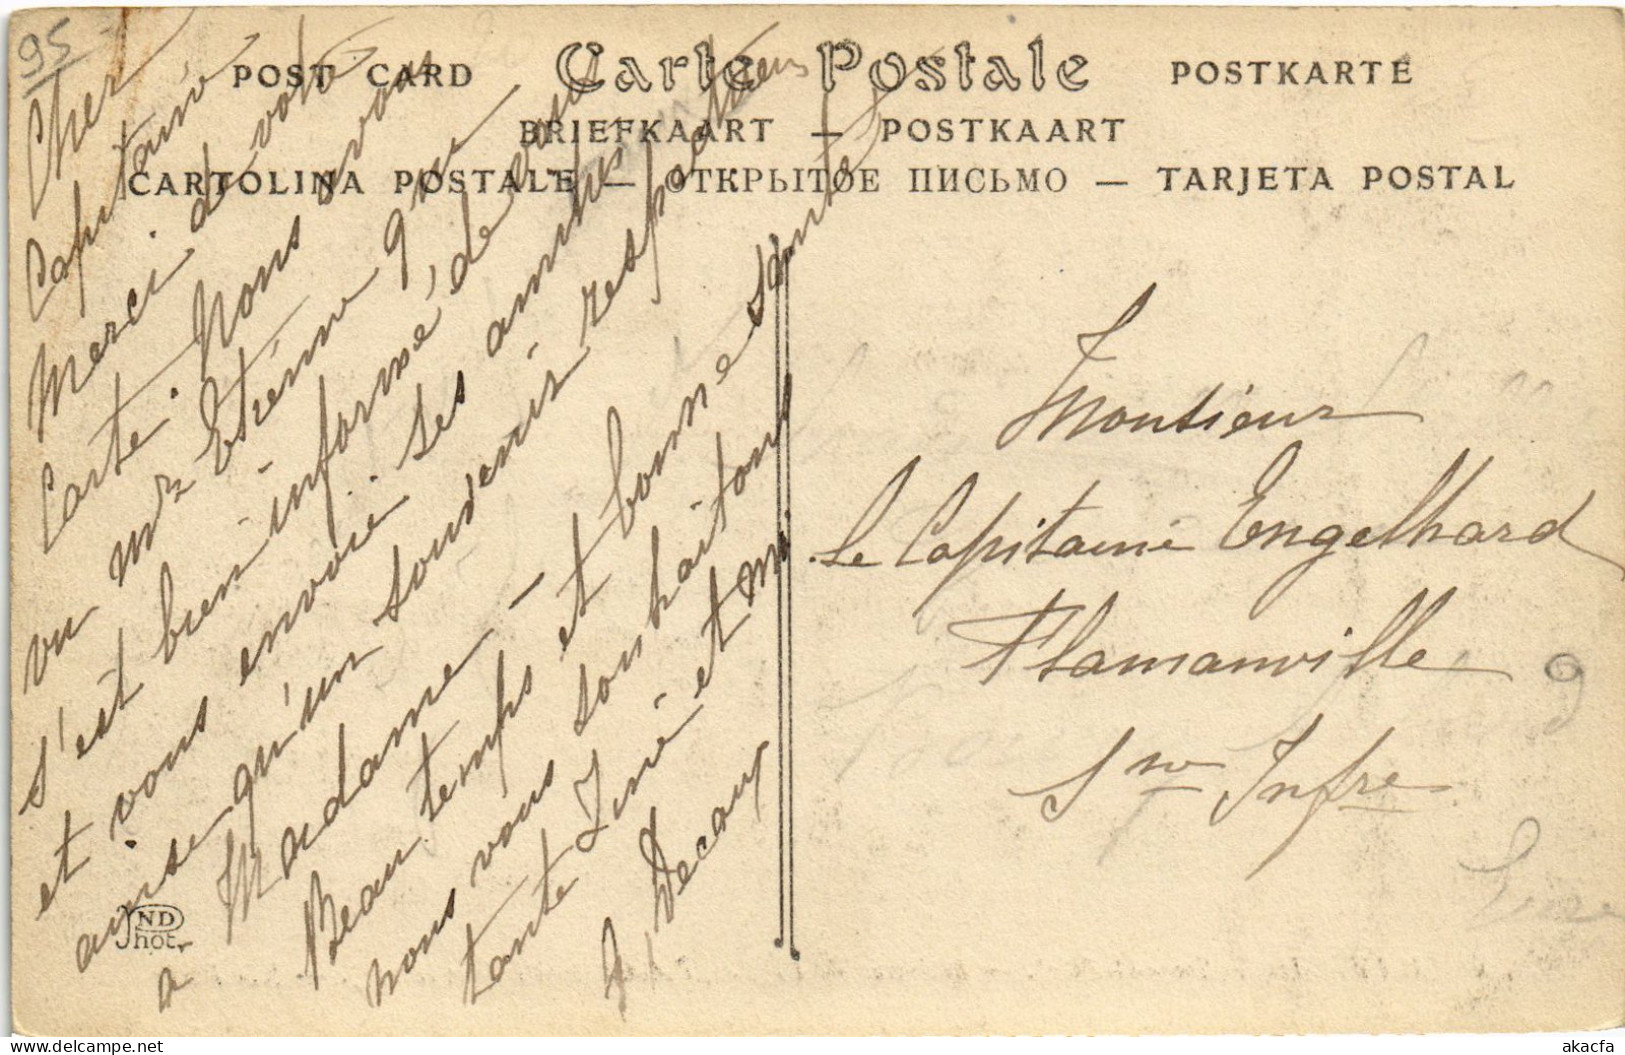 95
POST CARD Carte Postale POSTKARTE
BRIEFKAART — POSTKAART
CARTOLINA POSTALE — ОТКРЫТОЕ ПИСЬМО — TARJETA POSTAL
Cher
Capitaine
Merci de votre
Carte. Nous avons
vu Mr Etienne qui
s'est bien informé, de vous
et vous envoie ses amitiés
ainsi qu'un souvenir respectueux
a Madame —
Beau temps et bonne santé
nous vous souhaitons
tante et moi
Decaux
Monsieur
Le Capitaine Engelhard
Flamanville
Sne Infre
9
ND
Phot.
akacfa